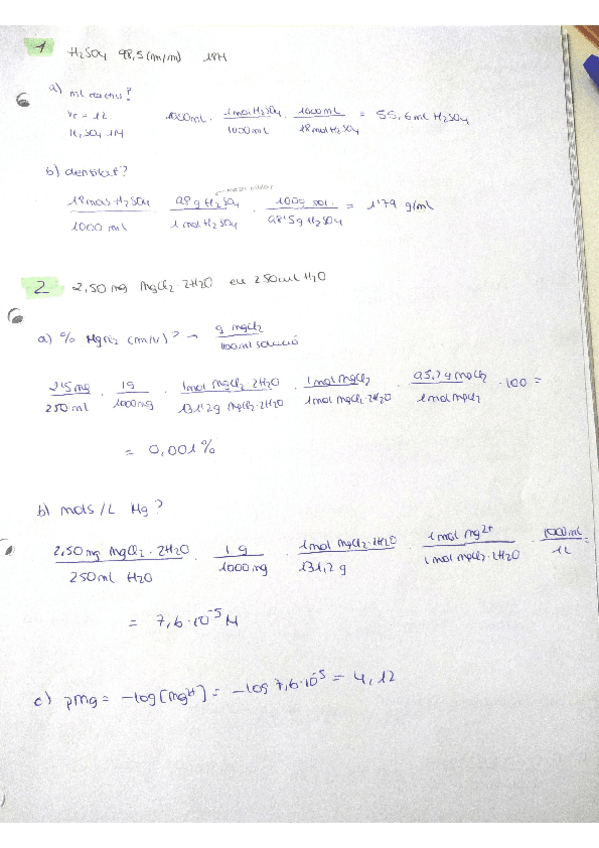 1 H₂SO₄ 98,5 (m/m) 18M
a) ml reactiu?
V = 1L
H₂SO₄ 1M
1000ml · 1mol H₂SO₄ / 1000ml · 1000ml / 18mol H₂SO₄ = 55,6ml H₂SO₄
b) densitat?
18mols H₂SO₄ / 1000 ml · 98g H₂SO₄ / 1 mol H₂SO₄ · 100g sol. / 98'5g H₂SO₄ = 1'79 g/ml
2 2,50 mg MgCl₂·2H₂O en 250ml H₂O
a) % MgCl₂ (m/v)? → g MgCl₂ / 100ml solució
2'5mg / 250ml · 1g / 1000mg · 1mol MgCl₂·2H₂O / 131'2g MgCl₂·2H₂O · 1mol MgCl₂ / 1mol MgCl₂·2H₂O · 95,2g MgCl₂ / 1mol MgCl₂ · 100 =
= 0,001%
b) mols/L Mg?
2,50 mg MgCl₂·2H₂O / 250ml H₂O · 1 g / 1000 mg · 1mol MgCl₂·2H₂O / 131,2 g · 1 mol Mg²⁺ / 1mol MgCl₂·2H₂O · 1000ml / 1L =
= 7,6·10⁻⁵ M
c) pMg = -log[Mg²⁺] = -log 7,6·10⁻⁵ = 4,12